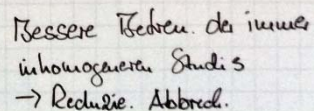 Bessere Betreu. der immer
inhomogeneren Studis
→ Reduzie. Abbrech.